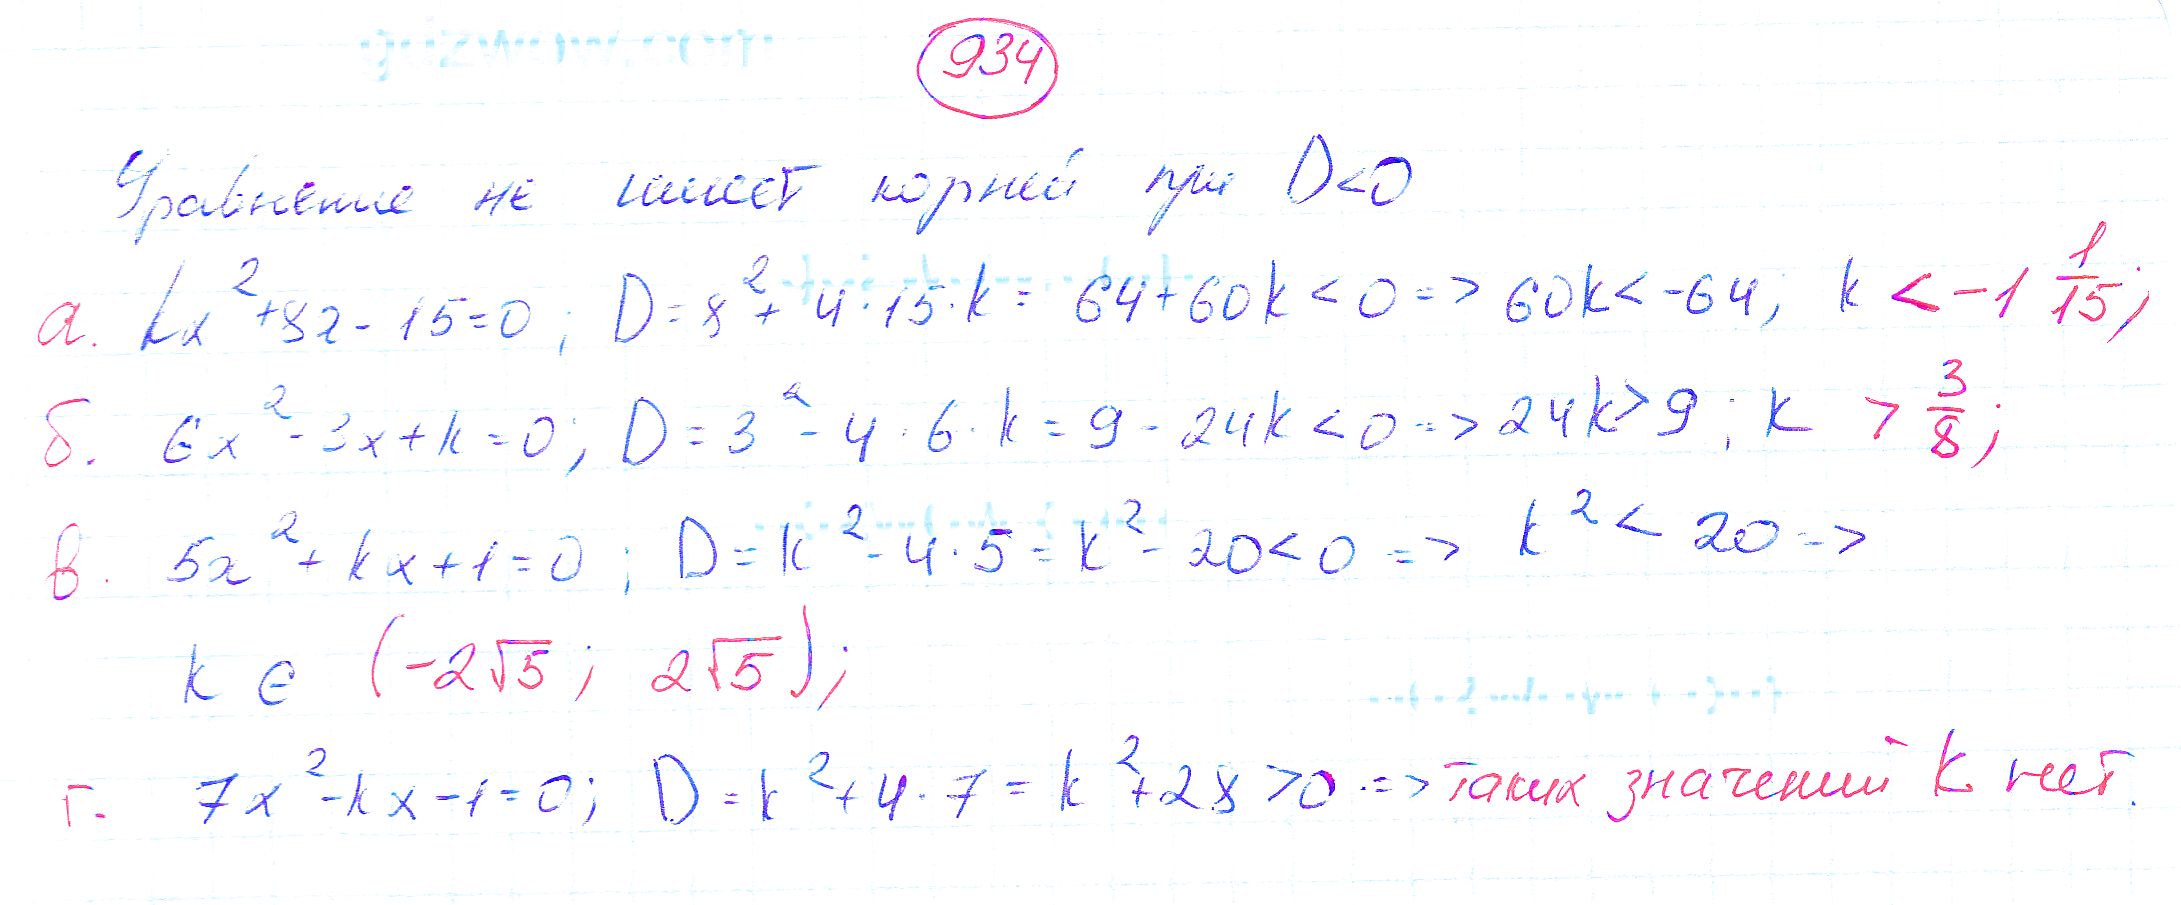 934
Уравнение не имеет корней при D<0
а. kx²+8x-15=0; D=8²+4·15·k= 64+60k<0=>60k<-64; k <-1 1/15;
б. 6x²-3x+k=0; D=3²-4·6·k=9-24k<0=>24k>9; k > 3/8;
в. 5x²+kx+1=0; D=k²-4·5=k²-20<0=> k²<20=>
k ∈ (-2√5; 2√5);
г. 7x²-kx-1=0; D=k²+4·7=k²+28>0=>таких значений k нет.